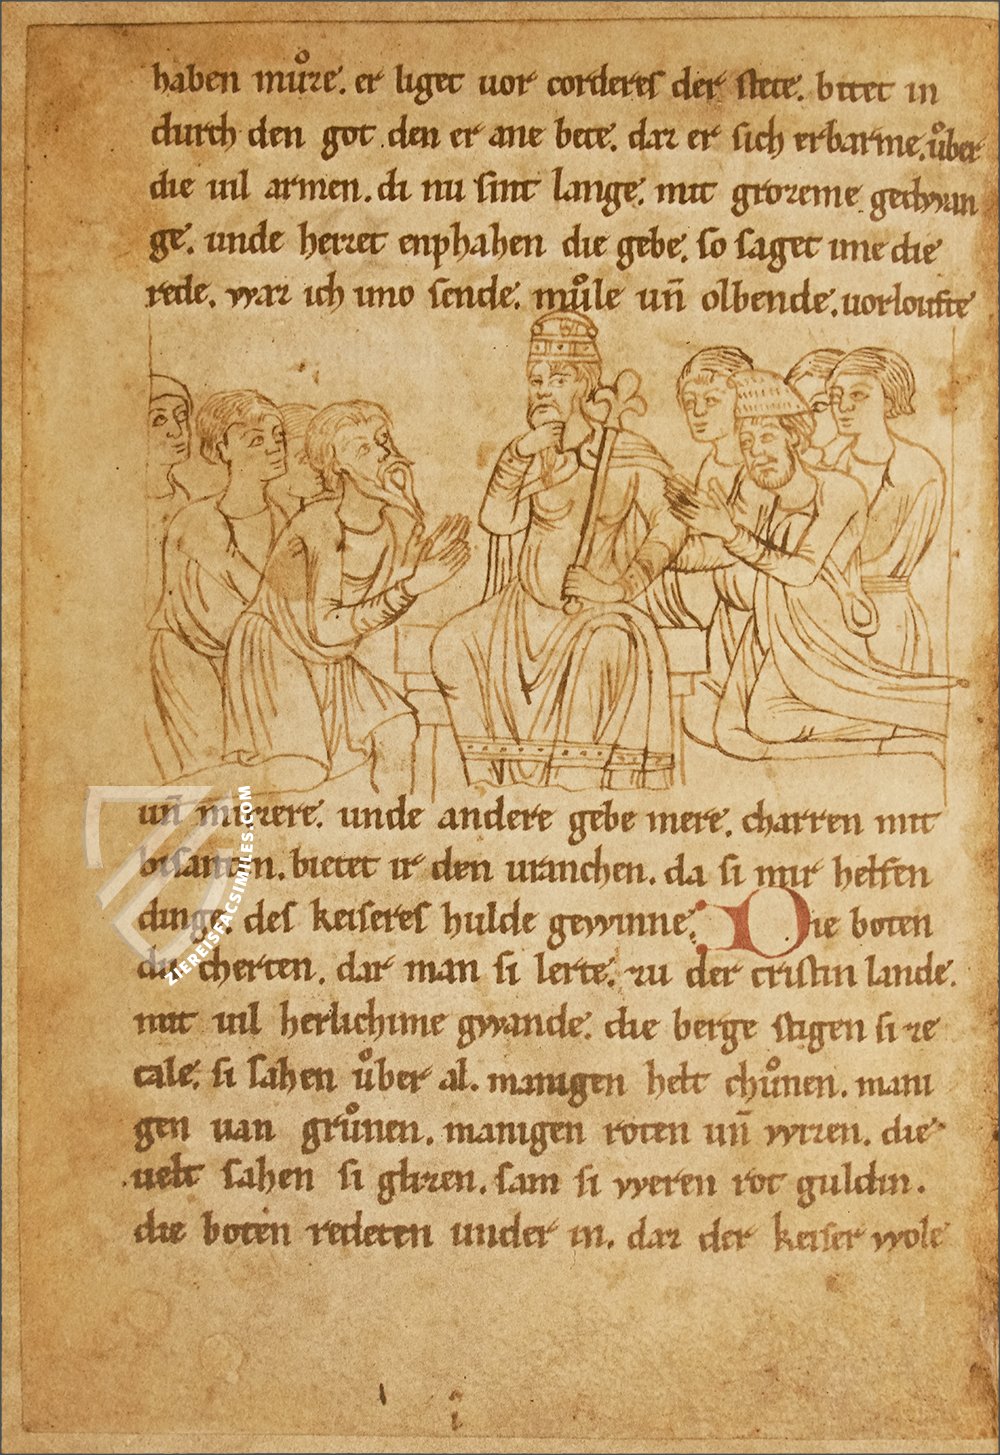 haben můze. er liget uor corderes der stete. bitet in
durch den got den er ane bete. daz er sich erbarme. über
die uil armen. di nu sint lange. mit grozeme gedwan
ge. unde herzet enphahen die gebe. so saget ime die
rede. waz ich imo sende. můle uñ olbende. uorloufte
uñ můzzere. unde andere gebe mere. charren mit
bisantin. bietet ir den uranchen. da si mir helfen
dinge. des keiseres hulde gewinne. Die boten
cherten. dar man si lerte. zu der cristin lande.
mit uil herlichime gwande. die berge stigen si ze
tale. si sahen ůber al. manigen helt chůnen. mani
gen uan grůnen. manigen roten uñ wizen. die
uelt sahen si glizen. sam si weren rot guldin.
die boten redeten under in. daz der keiser wole
ZIEREISFACSIMILES.COM